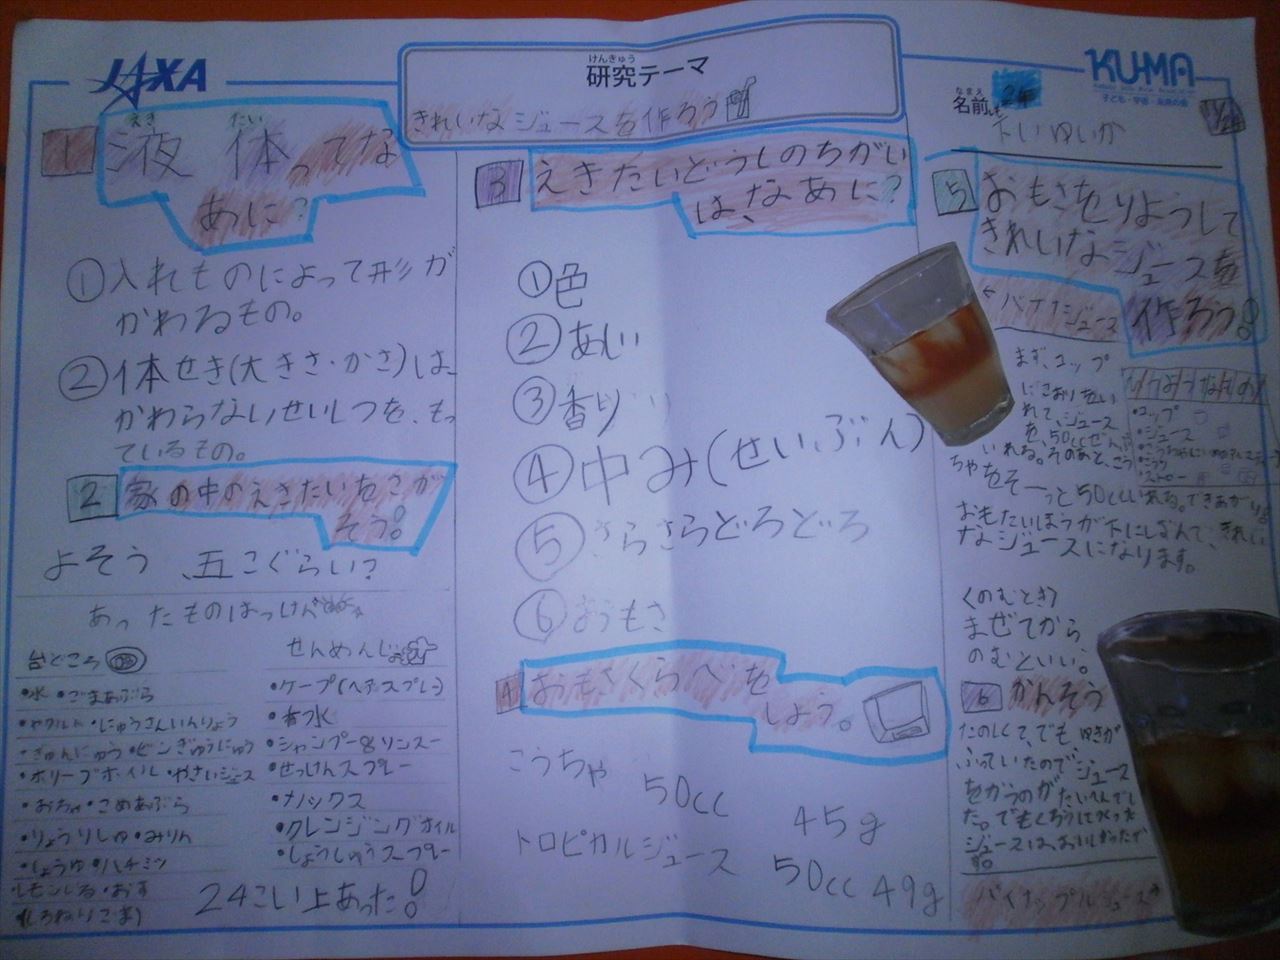 JAXA
けんきゅう
研究テーマ
きれいなジュースを作ろう
KU-MA
子ども・宇宙・未来の会
なまえ
名前
2年
1
えき たい
液体ってな
あに?
①入れものによって形が
かわるもの。
②体せき(大きさ・かさ)は
かわらないせいしつを、もっ
ているもの。
2
家の中のえきたいをさが
そう!
よそう 、五こぐらい?
あったものはっけん
台どころ
・水 ・ごまあぶら
・ヤクルト ・にゅうさんいんりょう
・ぎゅんにゅう ・ビンぎゅうにゅう
・ホリーブホイル ・やさいジュース
・おちゃ ・こめあぶら
・りょうりしゅ ・みりん
・しょうゆ ・ハチミツ
・レモンしる ・おす
(しろねりごま)
せんめんじょ
・ケープ(ヘアースプレー)
・香水
・シャンプー&リンスー
・せっけんスプレー
・ナノックス
・クレンジングオイル
・しょうしゅうスープレー
24こい上あった!
3
えきたいどうしのちがい
は、なあに?
①色
②あじ
③香り
④中み(せいぶん)
⑤さらさらどろどろ
⑥おもさ
4
おもさくらべを
しよう。
こうちゃ 50cc 45g
トロピカルジュース 50cc 49g
5
おもさをりようして
きれいなジュースを
作ろう!
まず、コップ
にこおりをい
れて、ジュース
を、50ccぜんぶ
いれる。そのあと、こう
ちゃをそーっと50ccいれる。できあがり
おもたいほうが下にしずんで、きれい
なジュースになります。
ひつようなもの
・コップ
・ジュース
・ストロー
くのむとき〉
まぜてから
のむといい。
6
かんそう
たのしくて、でもゆきが
ふっていたのでジュース
をかうのがたいへんでし
た。でもくろうしてつくった
ジュースは、おいしかったで
す。
パイナップルジュース